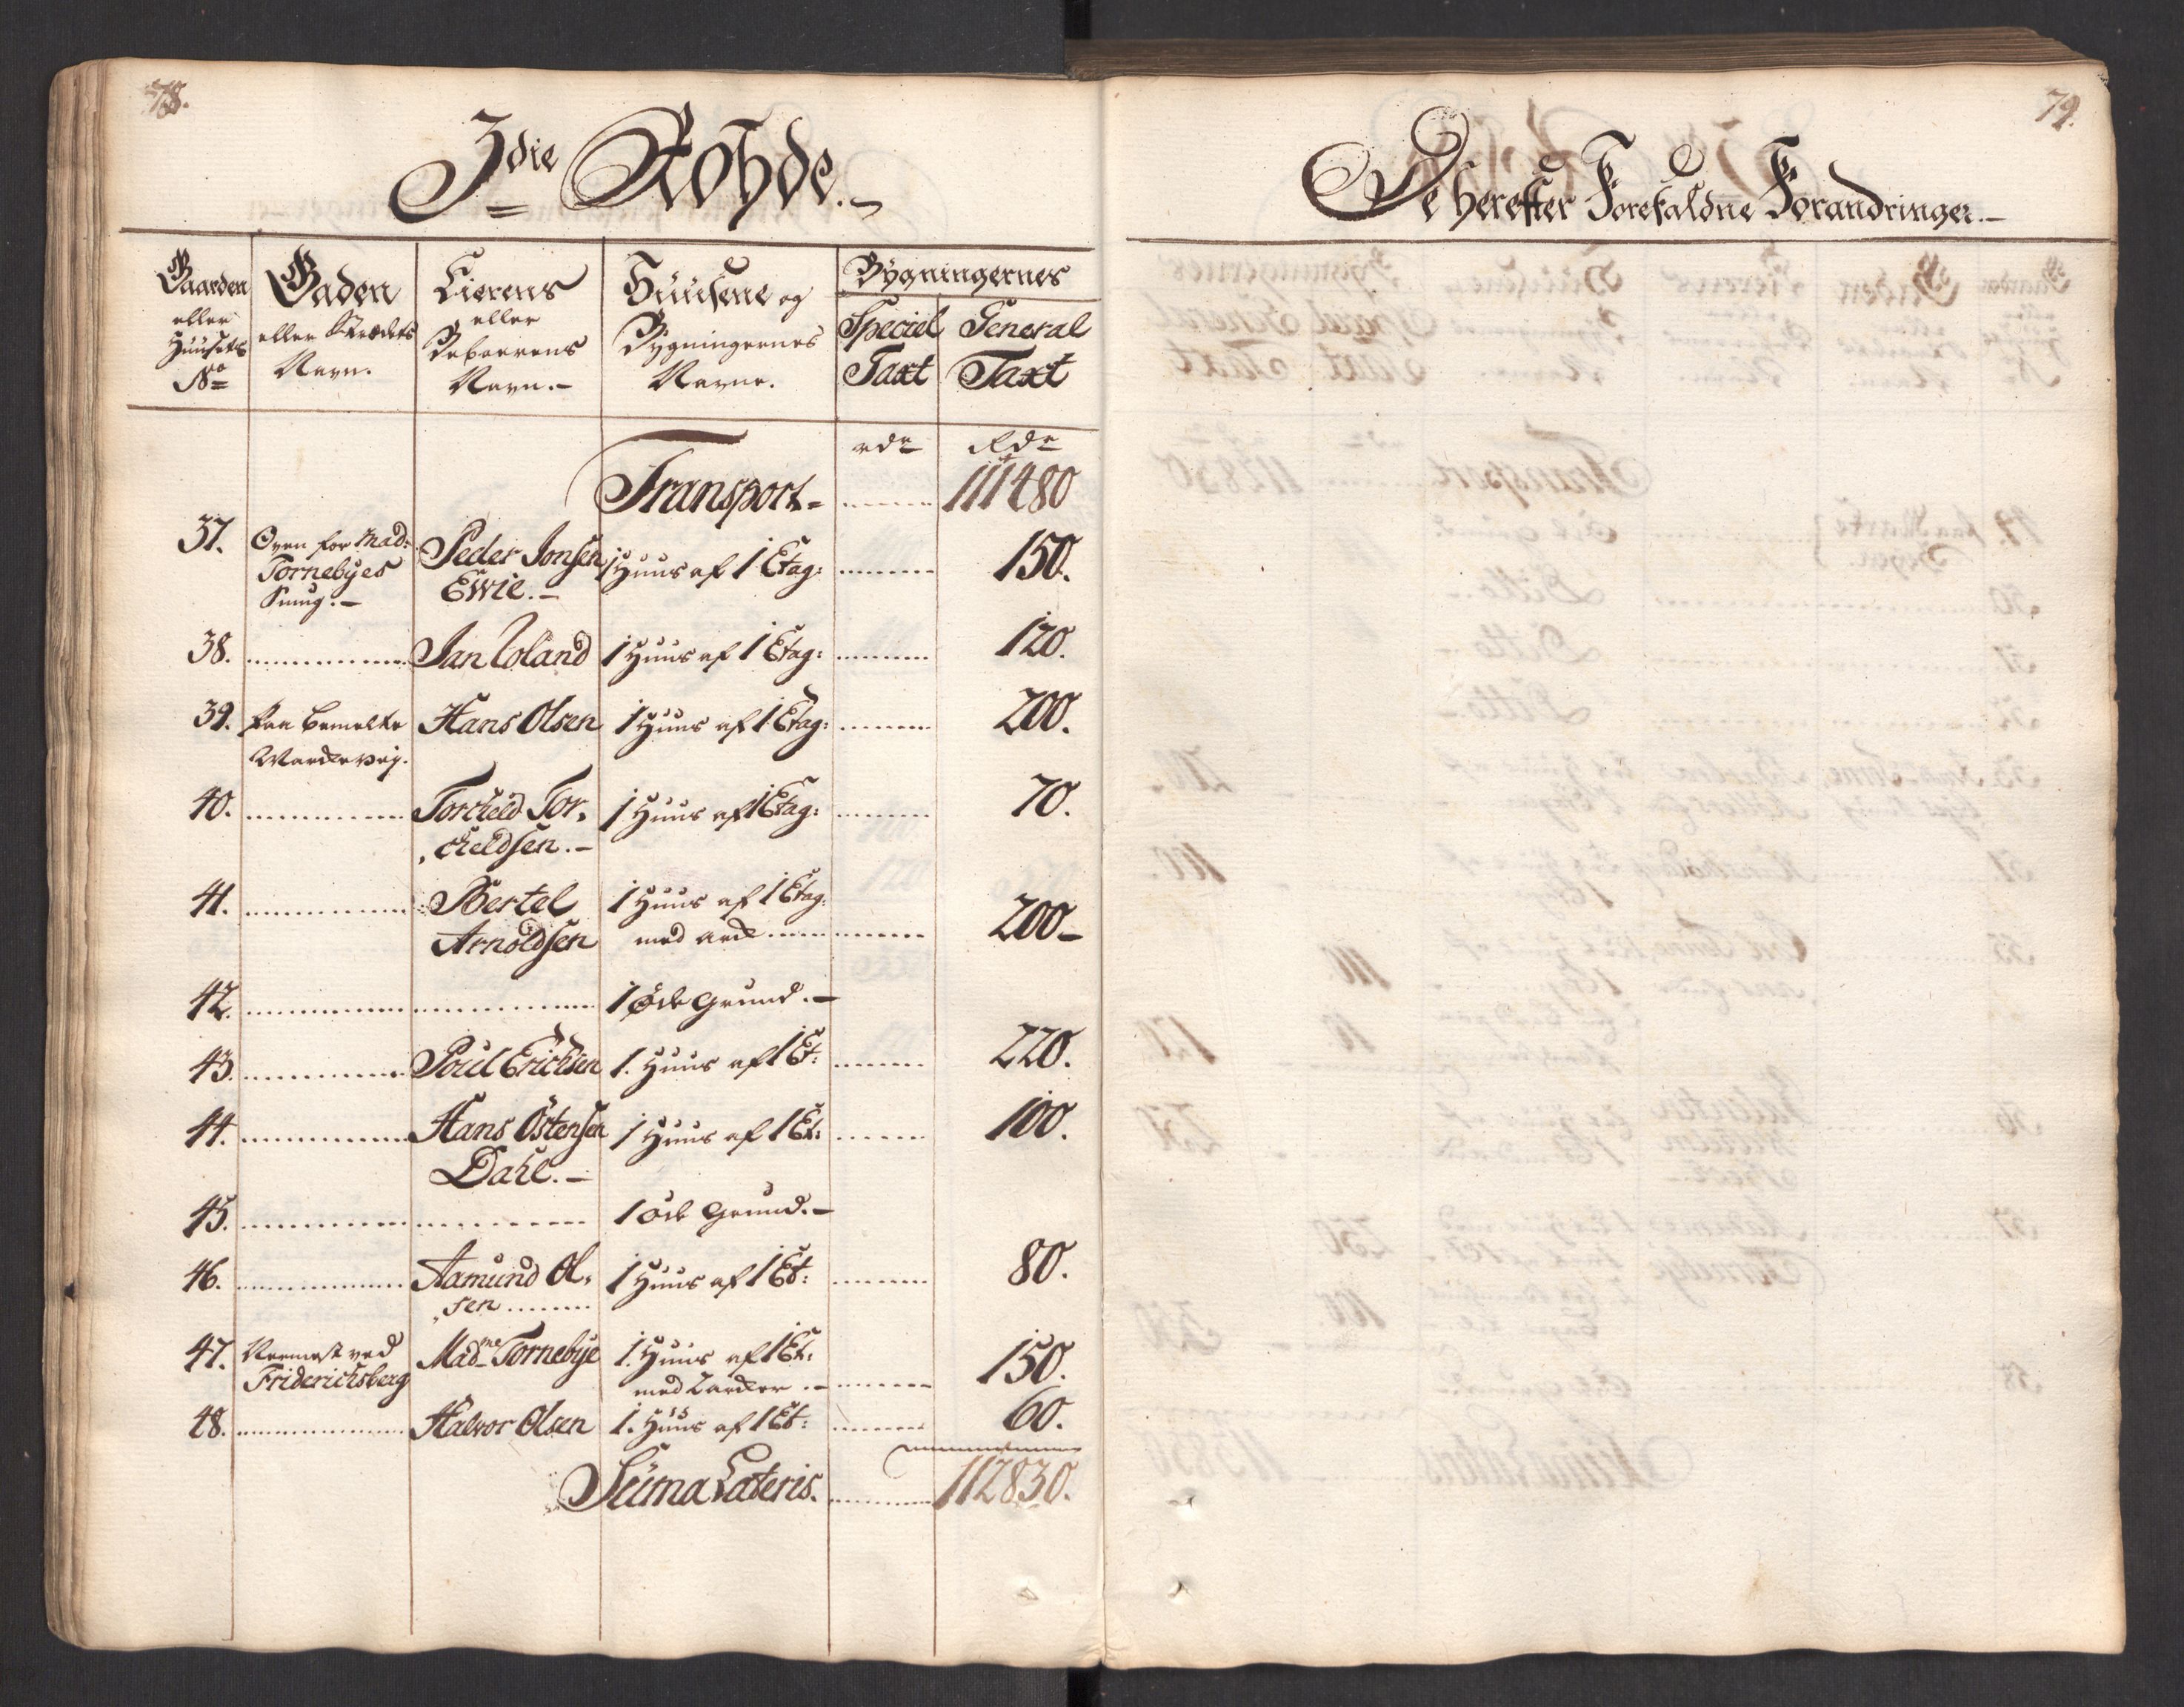 78.
3die Rohde.
Gaarden eller Huusets No
Gaden eller Strædets Navn.
Eierens eller Beboerens Navn.
Huusene og Bygningernes Navne.
Bygningernes
Speciel Taxt
General Taxt
rdr Rdr
Transport 111480
37. Oven for Mad: Peder Jonsen 1 Huus af 1 Etag: 150.
Tornebyes Ewie.
Smug.
38. Jan Coland 1 Huus af 1 Etag: 120.
39. paa bemelte Hans Olsen 1 Huus af 1 Etag: 200.
Wardevej.
40. Torcheld Tor, 1 Huus af 1 Etag: 70.
,cheldsen.
41. Bertel 1 Huus af 1 Etag:
Arnoldsen med 200
42. 1 øde Grund.
43. Poul Erichsen 1. Huus af 1 Et: 220.
44. Hans Östensen 1 Huus af 1 Et: 100.
Dahl.
45. 1 øde Grund.
46. Aamund Ol, 1 Huus af 1 Et: 80.
,sen
47. Nærmest ved Madme Tornebye 1. Huus af 1 Et:
Friderichsberg med 150.
48. Halvor Olsen 1. Huus af 1 Et: 60.
Suma Lateris. 112830.
79.
De herefter Forefaldne Forandringer.